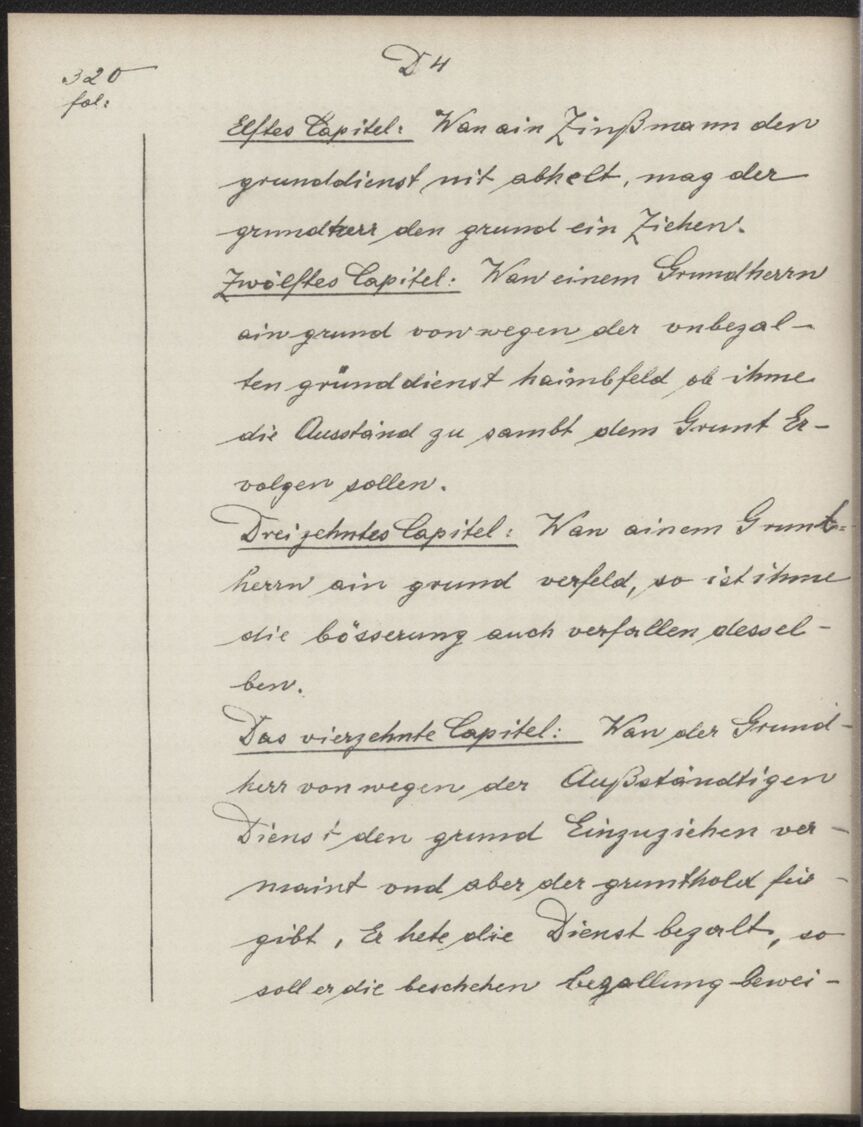 D4
320
fol:
Elftes Capitel: Wan ain Zinßmann den
grunddienst nit abhelt, mag der
grundherr den grund ein Ziehen.
Zwölftes Capitel: Wan einem Grundherrn
ain grund von wegen der vnbezal-
ten gründdienst haimbfeld ob ihme
die Ausständ zu sambt dem Grunt Er-
volgen sollen.
Dreizehntes Capitel: Wan ainem Grunt-
herrn ain grund verfeld, so ist ihme
die bösserung auch verfallen dessel-
ben.
Das vierzehnte Capitel: Wan der Grund-
herr von wegen der Außständtigen
Dienst den grund Einzuziehen ver-
maint vnd aber der grunthold für-
gibt, Er hete die Dienst bezalt, so
soll er die beschehen bezallung bewei-